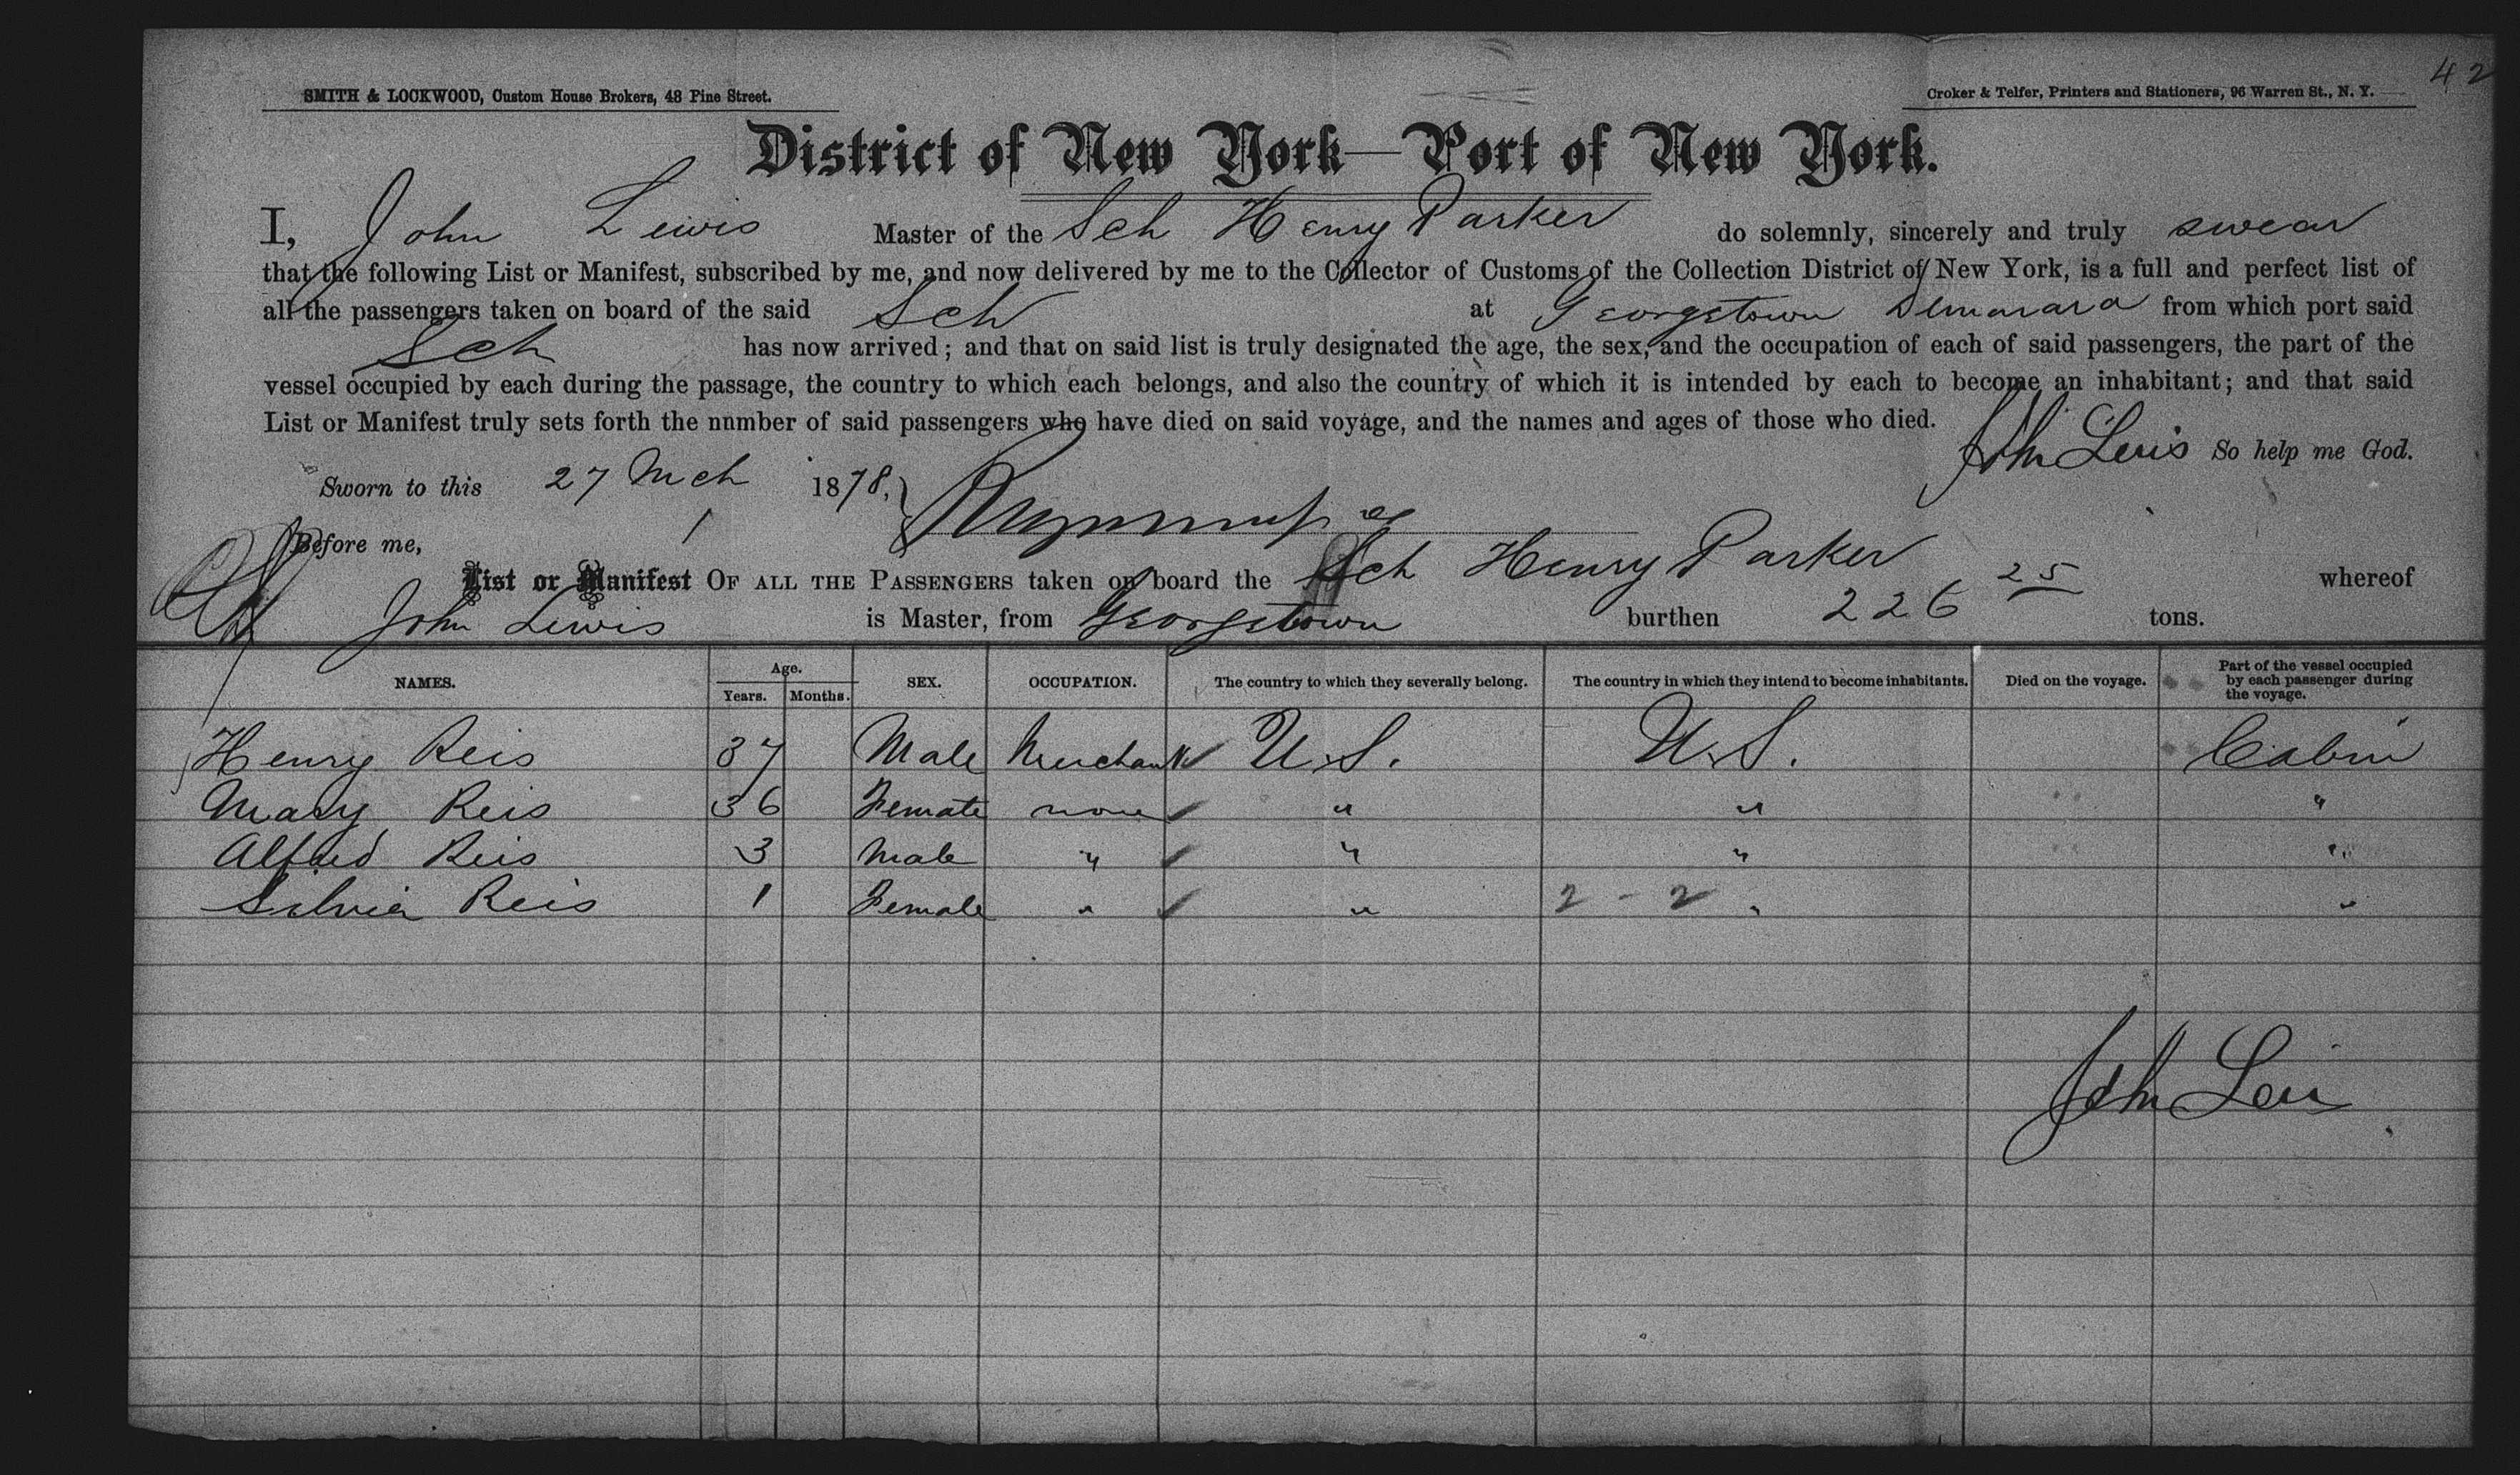 42
SMITH & LOCKWOOD, Custom House Brokers, 48 Pine Street.
Croker & Telfer, Printers and Stationers, 96 Warren St., N. Y.
District of New York—Port of New York.
I, John Lewis Master of the Sch Henry Parker do solemnly, sincerely and truly swear
that the following List or Manifest, subscribed by me, and now delivered by me to the Collector of Customs of the Collection District of New York, is a full and perfect list of
all the passengers taken on board of the said Sch at Georgetown Demarara from which port said
Sch has now arrived; and that on said list is truly designated the age, the sex, and the occupation of each of said passengers, the part of the
vessel occupied by each during the passage, the country to which each belongs, and also the country of which it is intended by each to become an inhabitant; and that said
List or Manifest truly sets forth the nnmber of said passengers who have died on said voyage, and the names and ages of those who died.
John Lewis So help me God.
Sworn to this 27 Mch 1878,
Before me,
List or Manifest OF ALL THE PASSENGERS taken on board the Sch Henry Parker whereof
John Lewis is Master, from Georgetown burthen 226 25 tons.
NAMES. Age. Years. Months. SEX. OCCUPATION. The country to which they severally belong. The country in which they intend to become inhabitants. Died on the voyage. Part of the vessel occupied by each passenger during the voyage.
Henry Reis 37 Male Merchant U.S. U.S. Cabin
Mary Reis 36 Female none " " "
Alfred Reis 3 Male " " " "
Silvia Reis 1 Female " " 2 - 2 " "
John Lewis